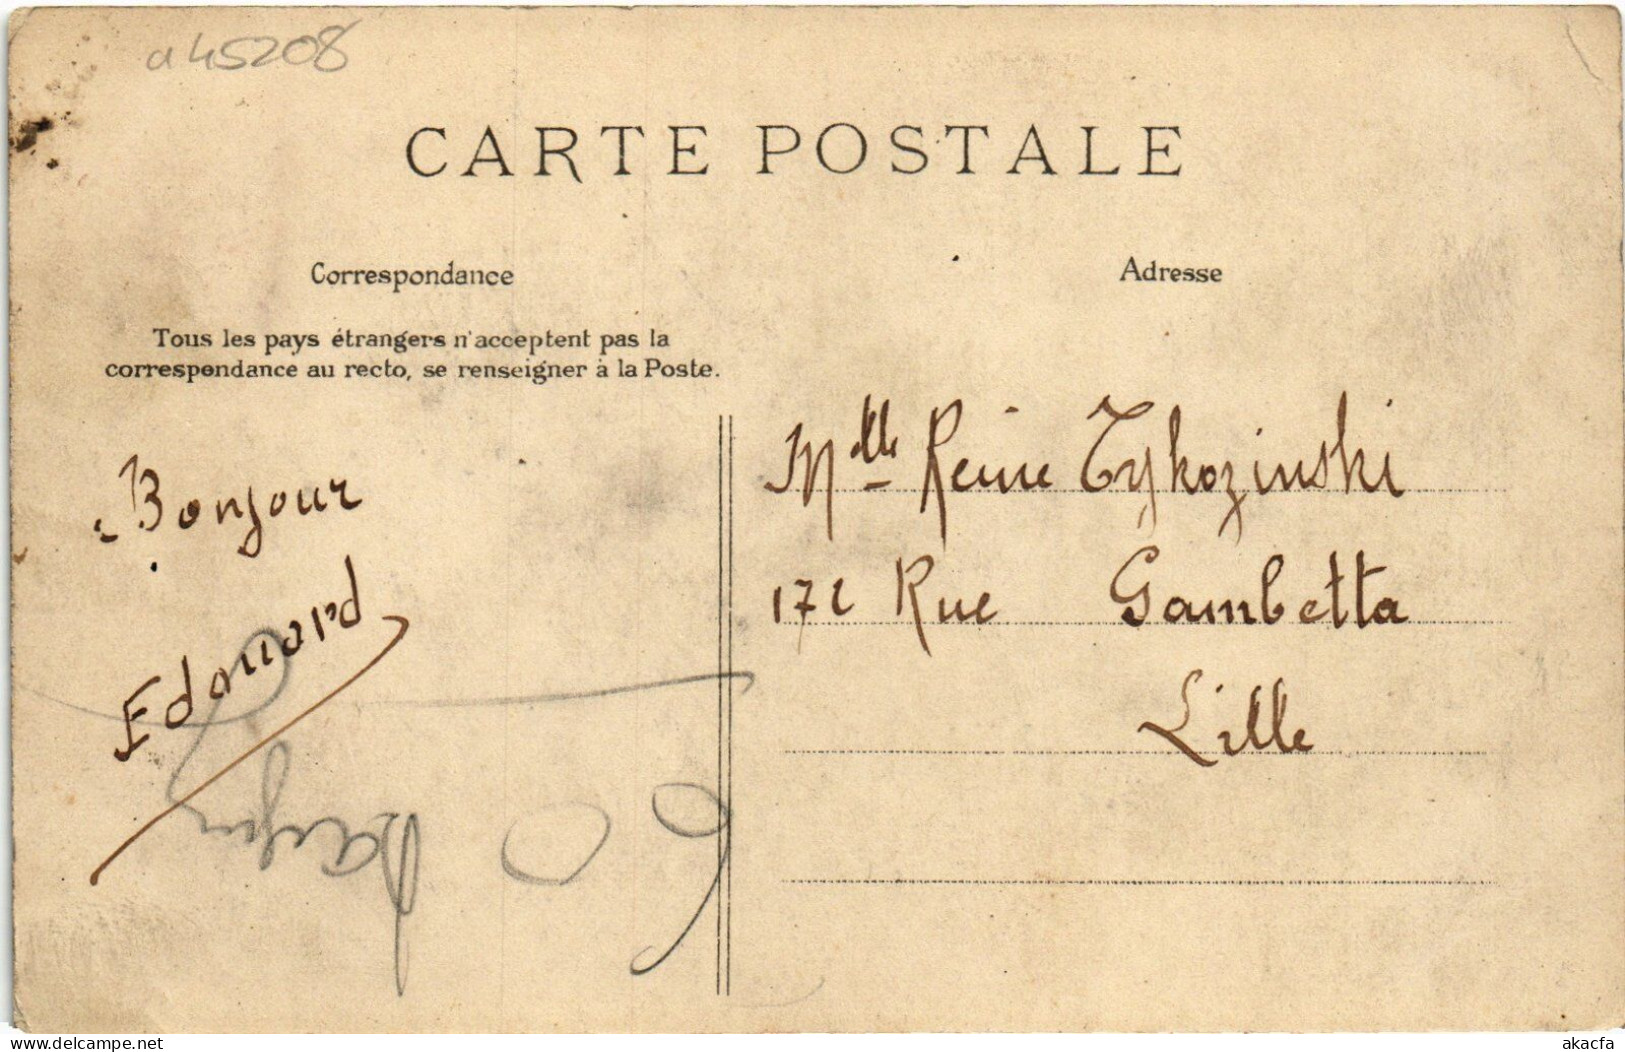 a45208
CARTE POSTALE
Correspondance
Tous les pays étrangers n'acceptent pas la
correspondance au recto, se renseigner à la Poste.
Bonjour
Edouard
Adresse
Mlle Reine Tykozinski
172 Rue Gambetta
Lille
delcampe.net
akacfa